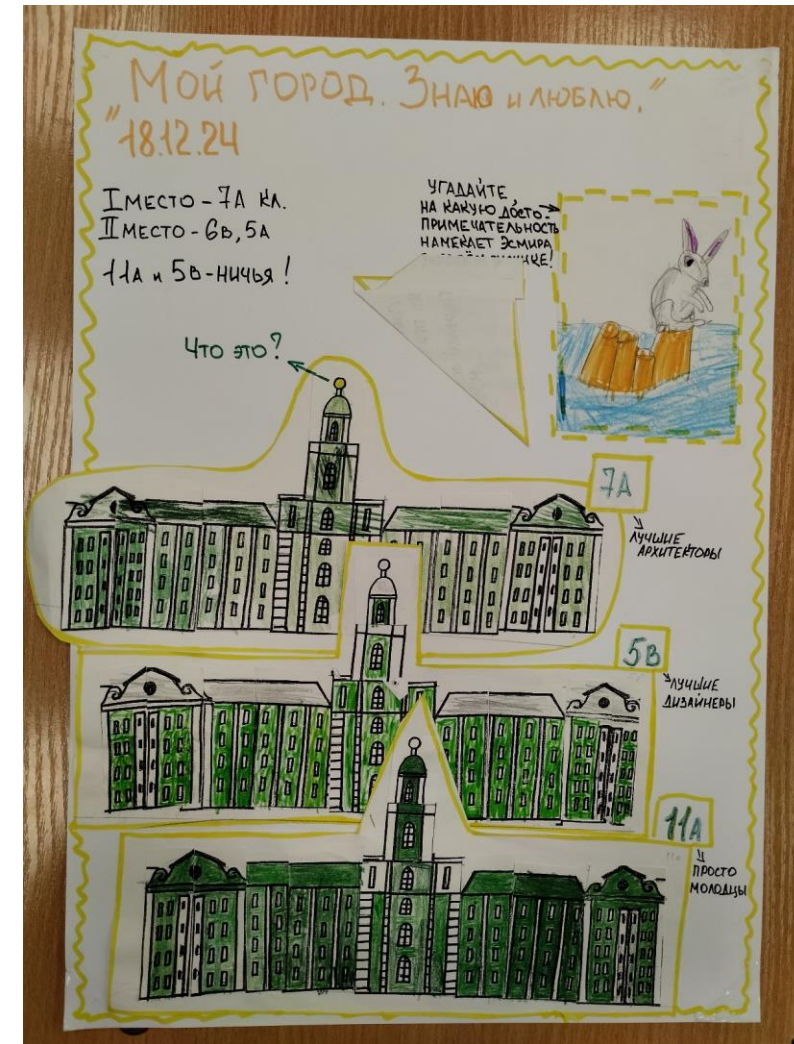 "Мой город. Знаю и люблю."
18.12.24
I место - 7А кл.
II место - 6в, 5А
11А и 5в - ничья!
Угадайте,
на какую досто-
примечательность
намекает Эсмира
Что это?
7А
лучшие
архитекторы
5В
лучшие
дизайнеры
11А
просто
молодцы